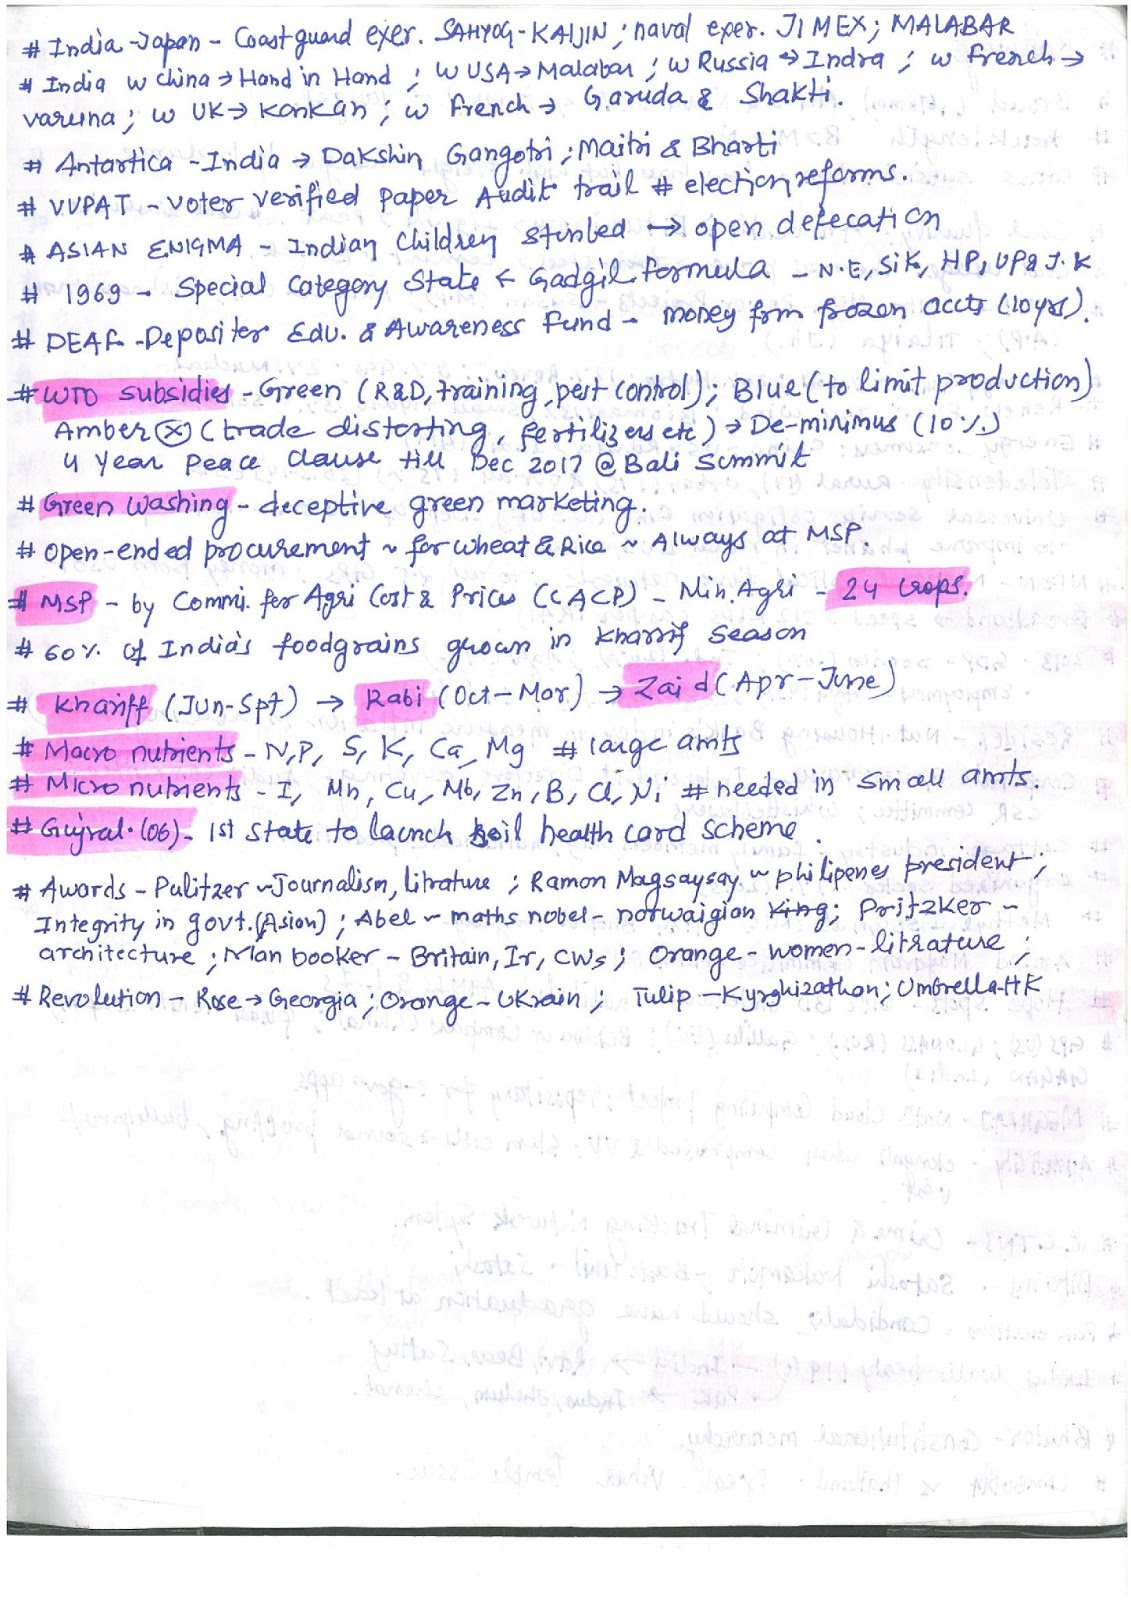 # India-Japan - Coastguard exer. SAHYOG-KAIJIN ; naval exer. JIMEX ; MALABAR
# India w China → Hand in Hand ; w USA → Malabar ; w Russia → Indra ; w French →
varuna ; w UK → Konkan ; w French → Garuda & Shakti.
# Antartica - India → Dakshin Gangotri ; Maitri & Bharti
# VVPAT - voter verified paper Audit trail # election reforms.
# ASIAN ENIGMA - Indian Children → open defecation
# 1969 - Special Category State < Gadgil formula - N.E, Sik, HP, UP & J.K
# DEAF - Depositer Edu. & Awareness Fund - money frm frozen accts (10yrs).
# WTO subsidies - Green (R&D, training, pest control) ; Blue (to limit production)
Amber ⓧ (trade distorting, fertilizers etc) → De-minimus (10%)
4 Year Peace clause till Dec 2017 @ Bali summit
# Green Washing - deceptive green marketing.
# open-ended procurement ~ for wheat & Rice ~ Always at MSP.
# MSP - by Commi. for Agri Cost & Prices (CACP) - Min. Agri - 24 crops.
# 60% of India's foodgrains grown in Kharrif season
# Khariff (Jun-Spt) → Rabi (Oct-Mar) → Zaid (Apr-June)
# Macro nutrients - N, P, S, K, Ca, Mg # large amts
# Micro nutrients - I, Mn, Cu, Mb, Zn, B, Cl, Ni # needed in small amts.
# Gujrat. (06) - 1st state to launch soil health card scheme.
# Awards - Pulitzer ~ Journalism, litrature ; Ramon Magsaysay ~ philipenes president ;
Integrity in govt. (Asian) ; Abel ~ maths nobel - norwaigian King ; Pritzker ~
architecture ; Man booker - Britain, Ir, CWs ; Orange - women - litrature ;
# Revolution - Rose → Georgia ; Orange - Ukrain ; Tulip - Kyrghizathan ; Umbrella-HK